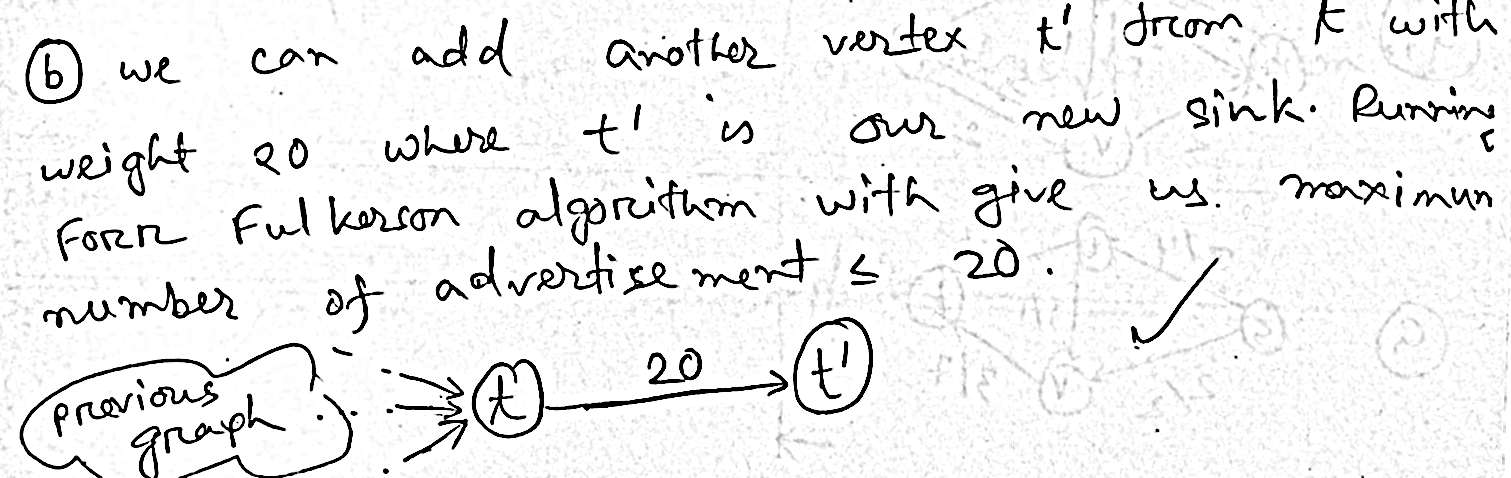 (b) we can add another vertex t' from t with
weight 20 where t' is our new sink. Running
Forr Fulkerson algorithm with give us. maximun
number of advertisement ≤ 20.
previous
graph
t
20
t'